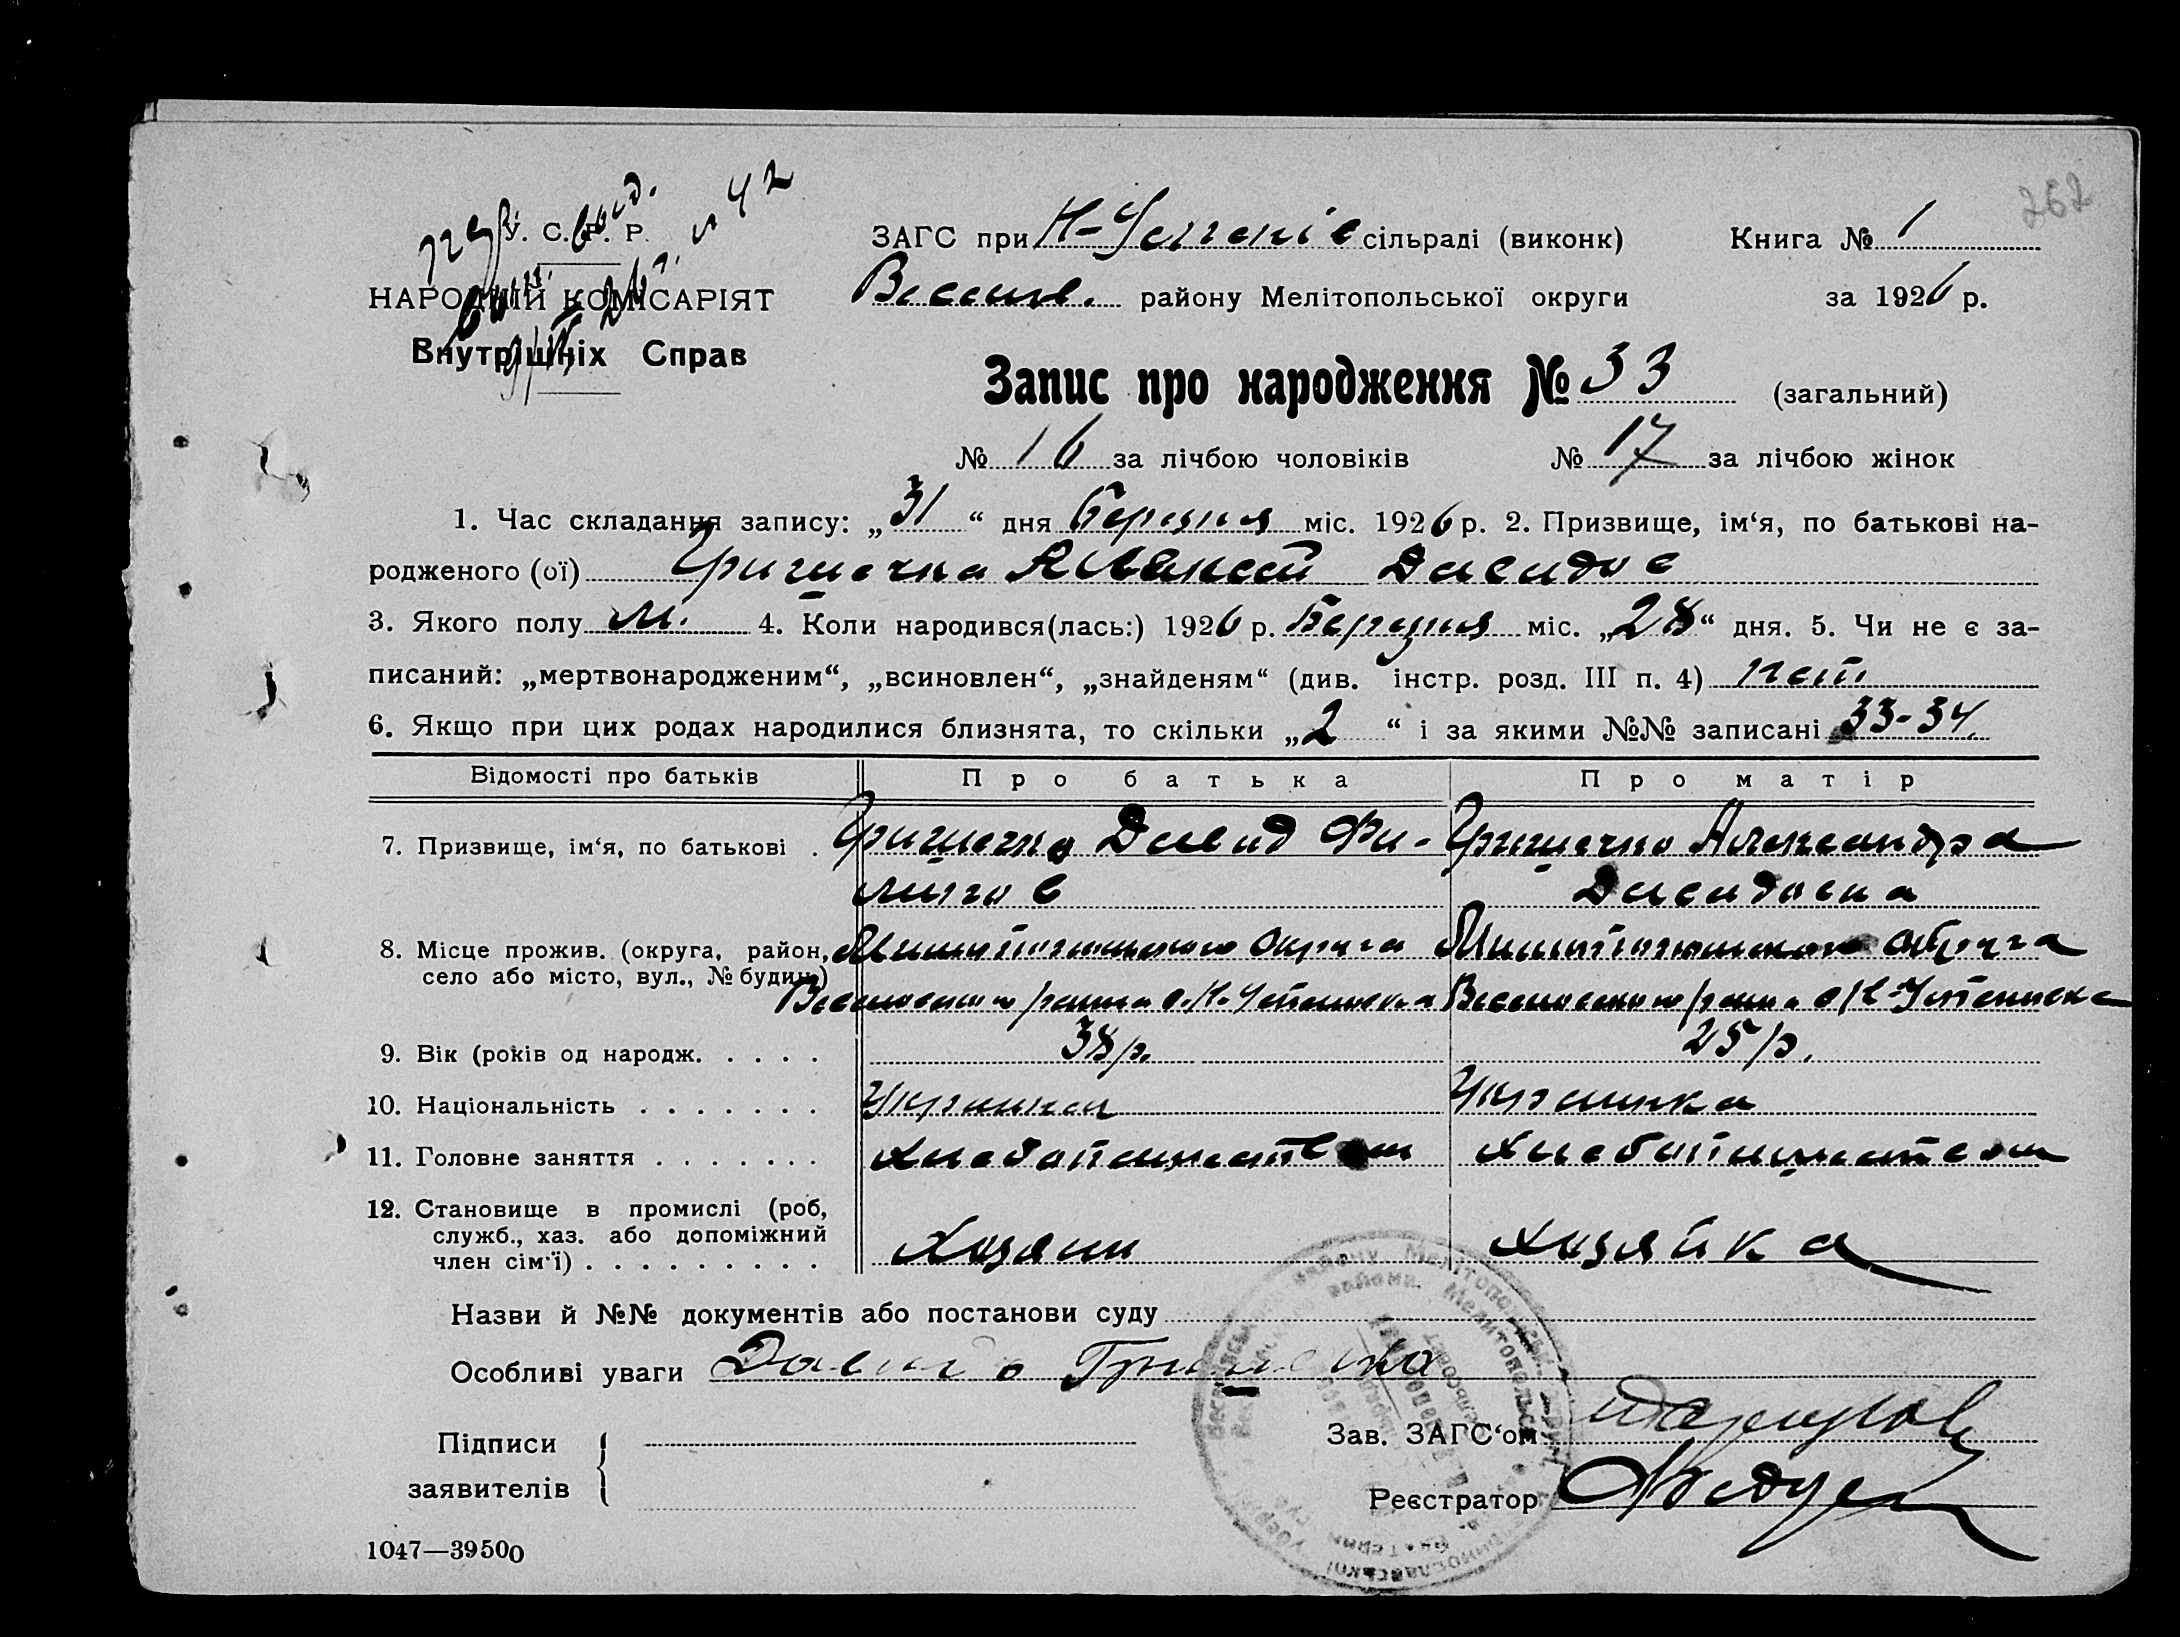 262
У. С. Р. Р.
НАРОДНІЙ КОМІСАРІЯТ
Внутрішніх Справ
№ 42
ЗАГС при Н-Успенів сільраді (виконк) Книга № 1
Весел. району Мелітопольської округи за 1926 р.
Запис про народження № 33 (загальний)
№ 16 за лічбою чоловіків № 17 за лічбою жінок
1. Час складання запису: „31“ дня Березня міс. 1926 р. 2. Призвище, ім‘я, по батькові на-
родженого (ої) Григиечка Алексей Давидов
3. Якого полу м. 4. Коли народився(лась:) 1926 р. Березня міс. „28“ дня. 5. Чи не є за-
писаний: „мертвонародженим“, „всиновлен“, „знайденям“ (див. інстр. розд. III п. 4) нет
6. Якщо при цих родах народилися близнята, то скільки „2“ і за якими №№ записані 33-34.
Відомості про батьків Про батька Про матір
7. Призвище, ім‘я, по батькові . Давид Фи- Александра
липов Давидовна
8. Місце прожив. (округа, район, Мелитопольского Округа Мелитопольского округа
село або місто, вул., № будин.) Веселовского района с. Н-Успеновка Веселовского района с. Н-Успеновка
9. Вік (років од народж. . . . . 38 р. 25 р.
10. Національність . . . . . . . Украинец Украинка
11. Головне заняття . . . . . . . Хлебопашеством Хлебопашеством
12. Становище в промислі (роб, Хозяин хозяйка
служб., хаз. або допоміжний
член сім‘ї) . . . . . . . . .
Назви й №№ документів або постанови суду
Особливі уваги Давид
Підписи
заявителів
Зав. ЗАГС‘ом
Реєстратор
1047—39500